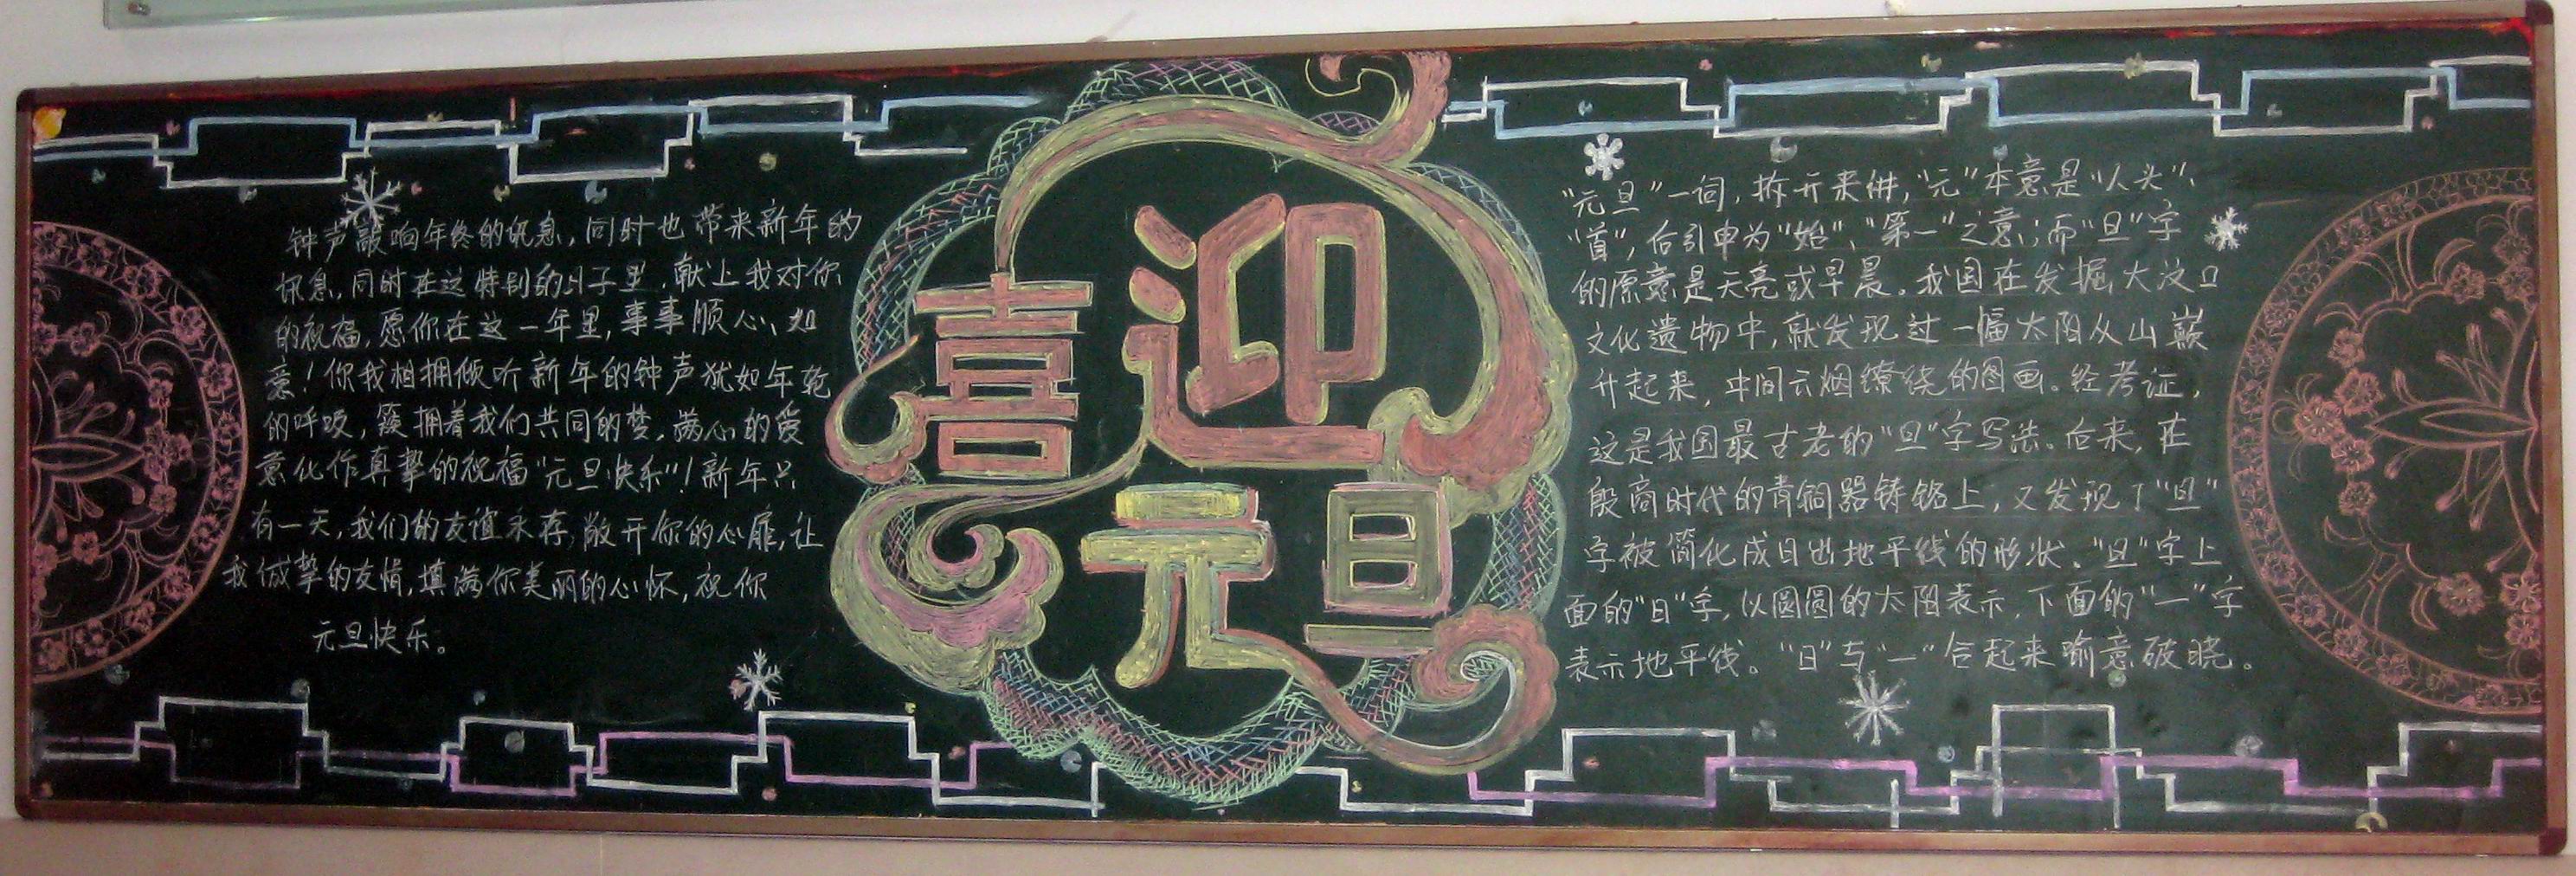 钟声敲响年终的讯息，同时也带来新年的
讯息，同时在这特别的日子里，献上我对你
的祝福，愿你在这一年里，事事顺心、如
意！你我相拥倾听新年的钟声犹如年轮
的呼吸，簇拥着我们共同的梦，满心的爱
意化作真挚的祝福“元旦快乐”！新年只
有一天，我们的友谊永存，敞开你的心扉，让
我诚挚的友情，填满你美丽的心怀，祝你
元旦快乐。
喜迎
元旦
“元旦”一词，拆开来讲，“元”本意是“人头”、
“首”，后引申为“始”、“第一”之意；而“旦”字
的原意是天亮或早晨。我国在发掘大汶口
文化遗物中，就发现过一幅太阳从山巅
升起来，中间云烟缭绕的图画。经考证，
这是我国最古老的“旦”字写法。后来，在
殷商时代的青铜器铸铭上，又发现了“旦”
字被简化成日出地平线的形状。“旦”字上
面的“日”字，以圆圆的太阳表示，下面的“一”字
表示地平线。“日”与“一”合起来喻意破晓。